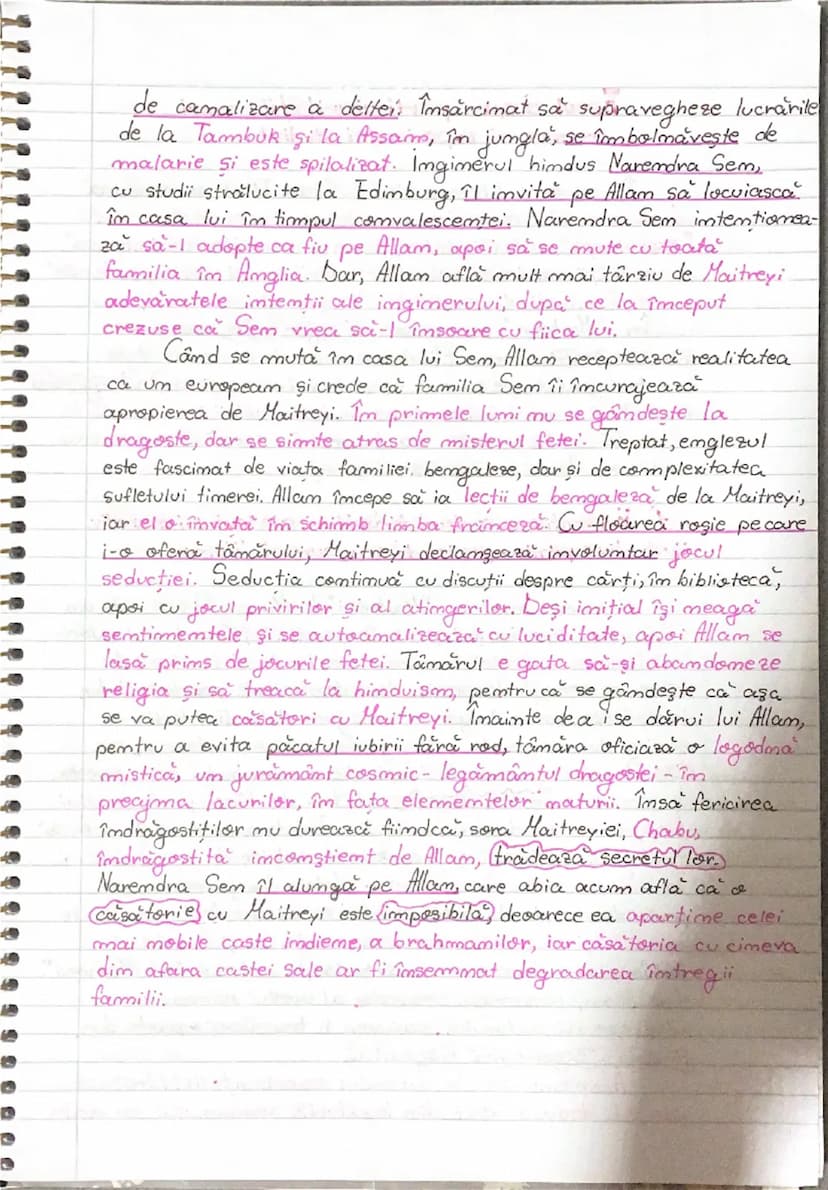 de canalizare a deltei. Însărcinat să supravegheze lucrările
de la Tambuk și la Assam, în junglă, se îmbolnăvește de
malarie și este spilalizat. Inginerul hindus Narendra Sen,
cu studii strălucite la Edinburg, îl invită pe Allan să locuiască
în casa lui în timpul convalescenței. Narendra Sen intenționea-
ză să-l adopte ca fiu pe Allan, apoi să se mute cu toată
familia în Anglia. Dar, Allan află mult mai târziu de Maitreyi
adevăratele intenții ale inginerului, după ce la început
crezuse că Sen vrea să-l însoare cu fiica lui.
Când se mută în casa lui Sen, Allan receptează realitatea
ca un european și crede că familia Sen îi încurajează
apropierea de Maitreyi. În primele luni nu se gândește la
dragoste, dar se simte atras de misterul fetei. Treptat, englezul
este fascinat de viața familiei bengaleze, dar și de complexitatea
sufletului tinerei. Allan începe să ia lecții de bengaleză de la Maitreyi,
iar el o învață în schimb limba franceză. Cu floarea roșie pe care
i-o oferă tânărului, Maitreyi declanșează involuntar jocul
seducției. Seducția continuă cu discuții despre cărți, în bibliotecă,
apoi cu jocul privirilor și al atingerilor. Deși inițial își neagă
sentimentele și se autoanalizează cu luciditate, apoi Allan se
lasă prins de jocurile fetei. Tânărul e gata să-și abandoneze
religia și să treacă la hinduism, pentru că se gândește că așa
se va putea căsători cu Maitreyi. Înainte de a i se dărui lui Allan,
pentru a evita păcatul iubirii fără rod, tânăra oficiază o logodnă
mistică, un jurământ cosmic - legământul dragostei - în
preajma lacurilor, în fața elementelor naturii. Însă fericirea
îndrăgostiților nu durează fiindcă, sora Maitreyiei, Chabu,
îndrăgostită inconștient de Allan, trădează secretul lor.
Narendra Sen îl alungă pe Allan, care abia acum află că o
căsătorie cu Maitreyi este imposibilă, deoarece ea aparține celei
mai nobile caste indiene, a brahmanilor, iar căsătoria cu cineva
din afara castei sale ar fi însemnat degradarea întregii
familii.